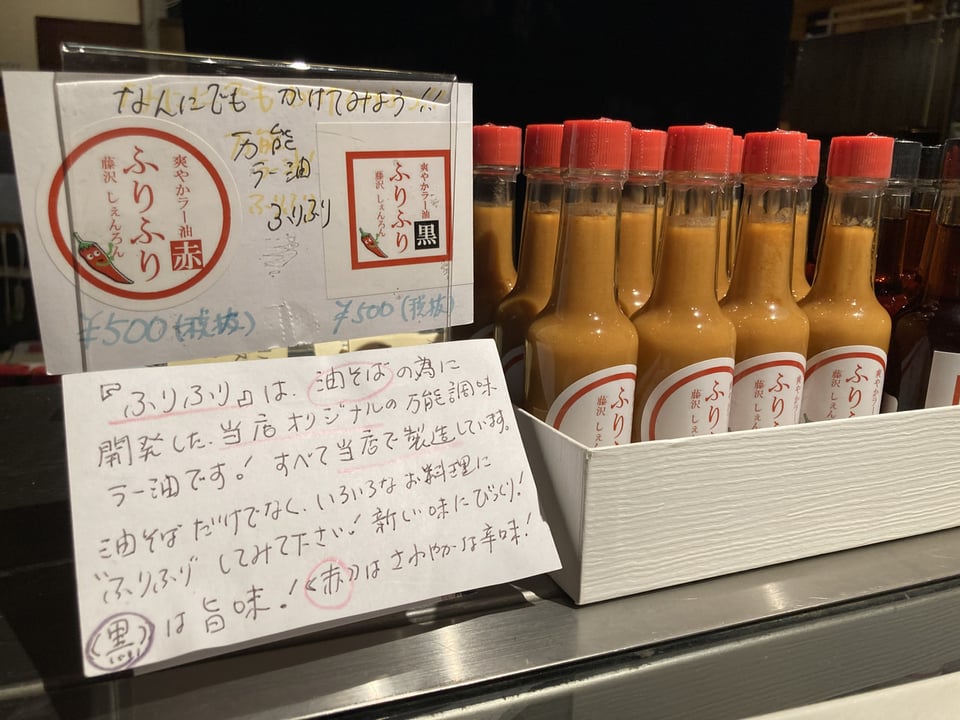 なんにでも かけてみよう!!
万能
ラー油
ふりふり
爽やかラー油 赤
ふりふり
藤沢 しぇんろん
爽やかラー油 黒
ふりふり
藤沢 しぇんろん
¥500(税抜)
¥500(税抜)
『ふりふり』は、油そばの為に
開発した、当店オリジナルの万能調味
ラー油です! すべて当店で製造しています。
油そばだけでなく、いろいろなお料理に
"ふりふり"してみて下さい! 新しい味にびっくり!
〈黒〉は旨味! 〈赤〉はさわやかな辛味!
ふり
藤沢 しぇん
ふり
藤沢 しぇ
ふり
藤沢 しぇ
爽やかラー
ふりふ
藤沢 しぇん